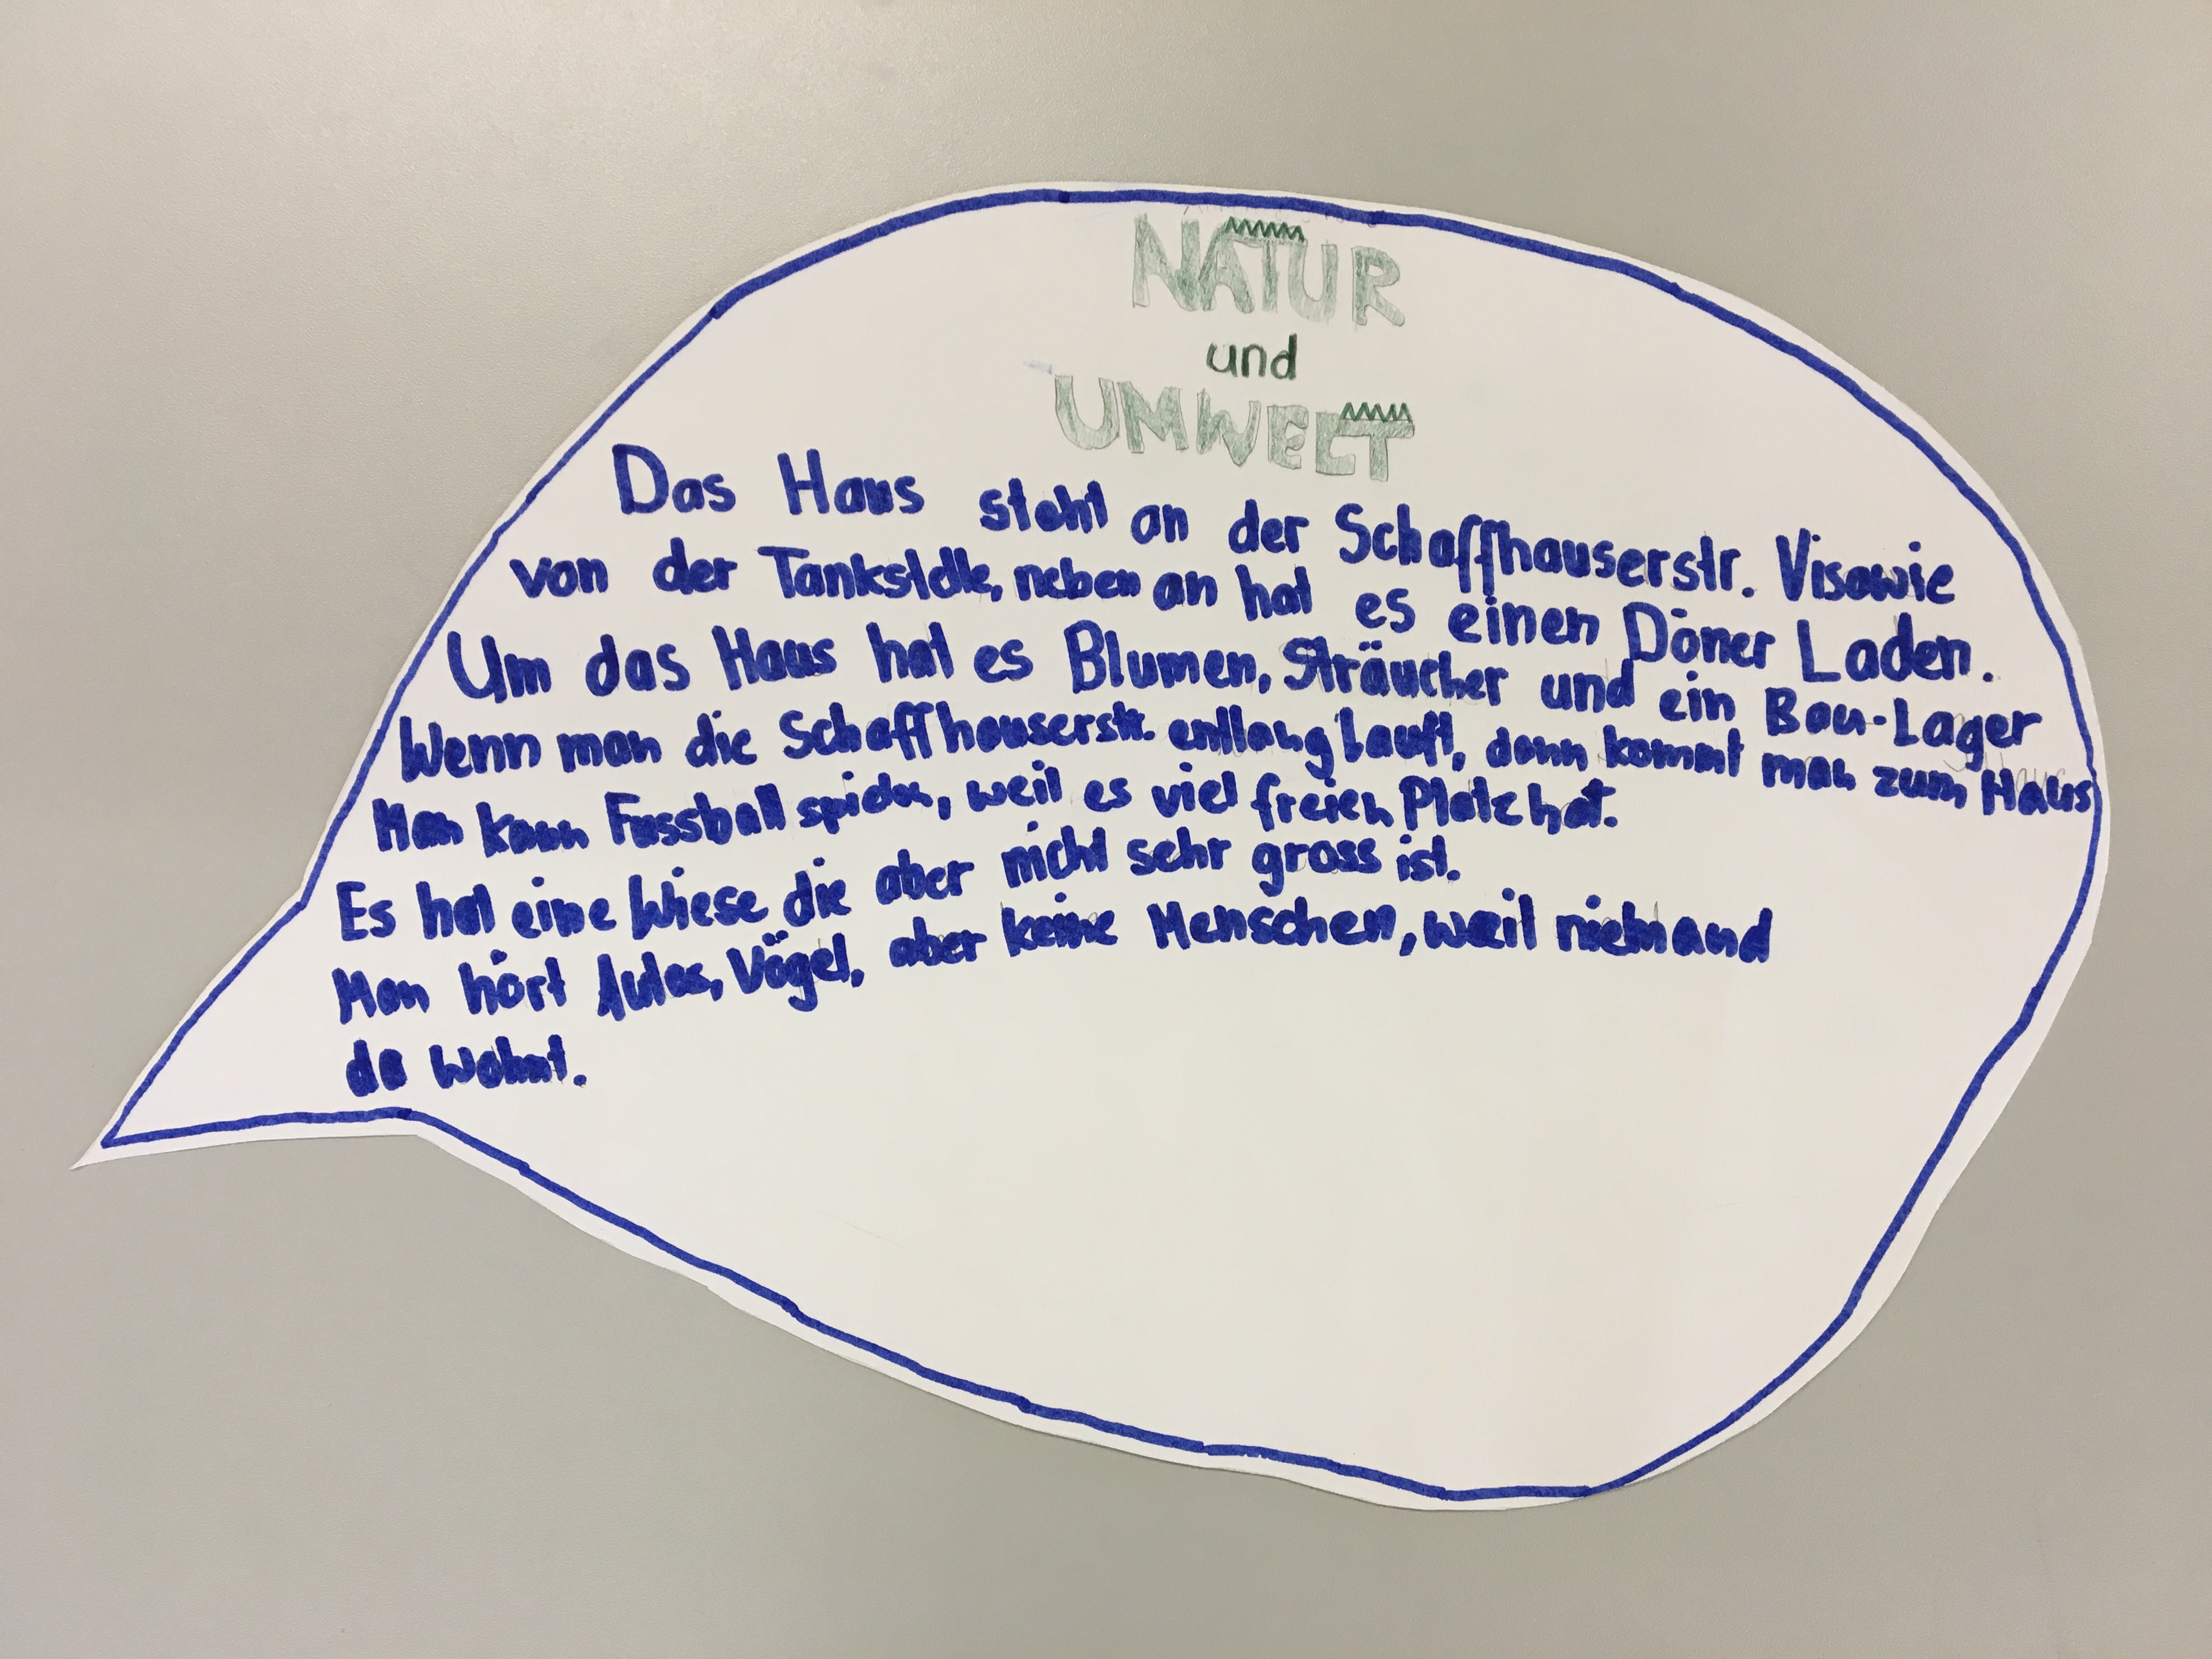 NATUR
und
UMWELT
Das Haus steht an der Schaffhauserstr. Visawie
von der Tankstelle, neben an hat es einen Döner Laden.
Um das Haus hat es Blumen, Sträucher und ein Bau-Lager
Wenn man die Schaffhauserstr. entlang lauft, dann kommt man zum Haus
Man kann Fussball spielen, weil es viel freien Platz hat.
Es hat eine Wiese die aber nicht sehr gross ist.
Man hört Autos, Vögel, aber keine Menschen, weil niemand
da wohnt.